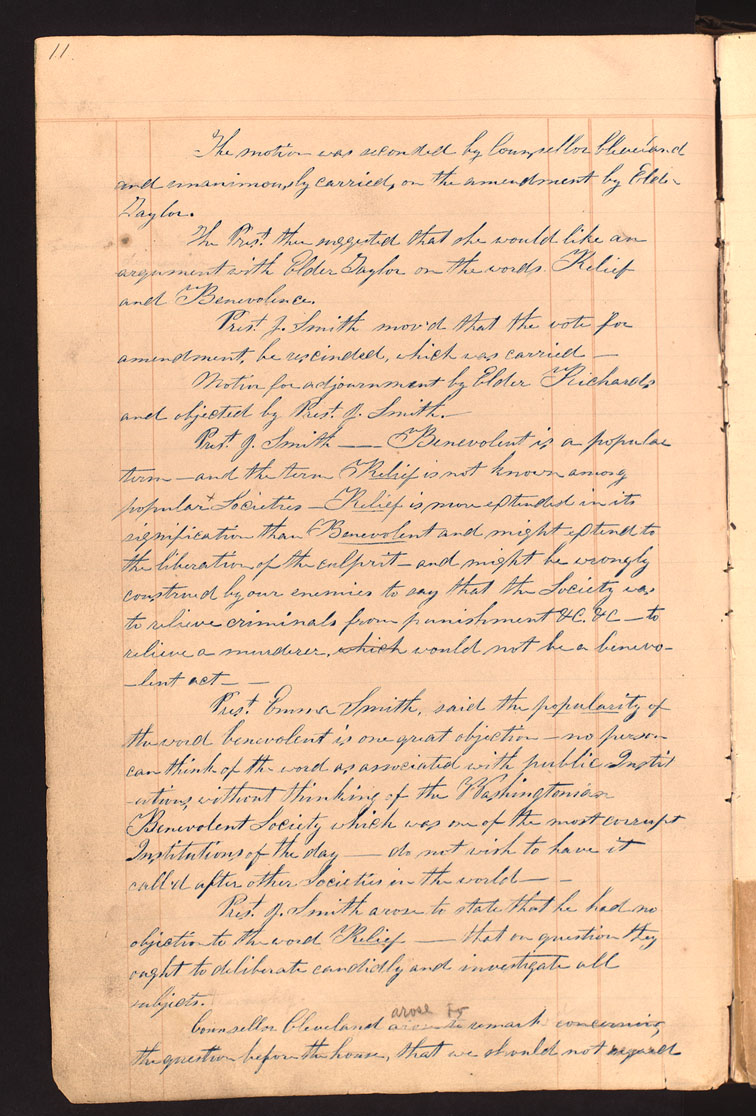 11
The motion was seconded by Counsellor Cleveland
and unanimously carried, on the amendment by Elder
Taylor.
The Prest. then suggested that she would like an
argument with Elder Taylor on the words. Relief
and Benevolence.
Prest. J. Smith mov'd that the vote for
amendment, be rescinded, which was carried —
Motion for adjournment by Elder Richards
and objected by Prest. J. Smith. —
Prest. J. Smith — — Benevolent is a popular
term — and the term Relief is not known among
popular Societies — Relief is more extended in its
signification than Benevolent and might extend to
the liberation of the culprit — and might be wrongly
construed by our enemies to say that the Society was
to relieve criminals from punishment &c. &c — to
relieve a murderer, which would not be a benevo-
-lent act — —
Prest. Emma Smith, said the popularity of
the word benevolent is one great objection — no person
can think of the word as associated with public Instit
utions, without thinking of the Washingtonian
Benevolent Society which was one of the most corrupt
Institutions of the day — do not wish to have it
call'd after other Societies in the world — —
Prest. J. Smith arose to state that he had no
objection to the word Relief — that on question they
ought to deliberate candidly and investigate all
subjects.
arose to
Counsellor Cleveland remark concerning
the question before the house, that we should not regard